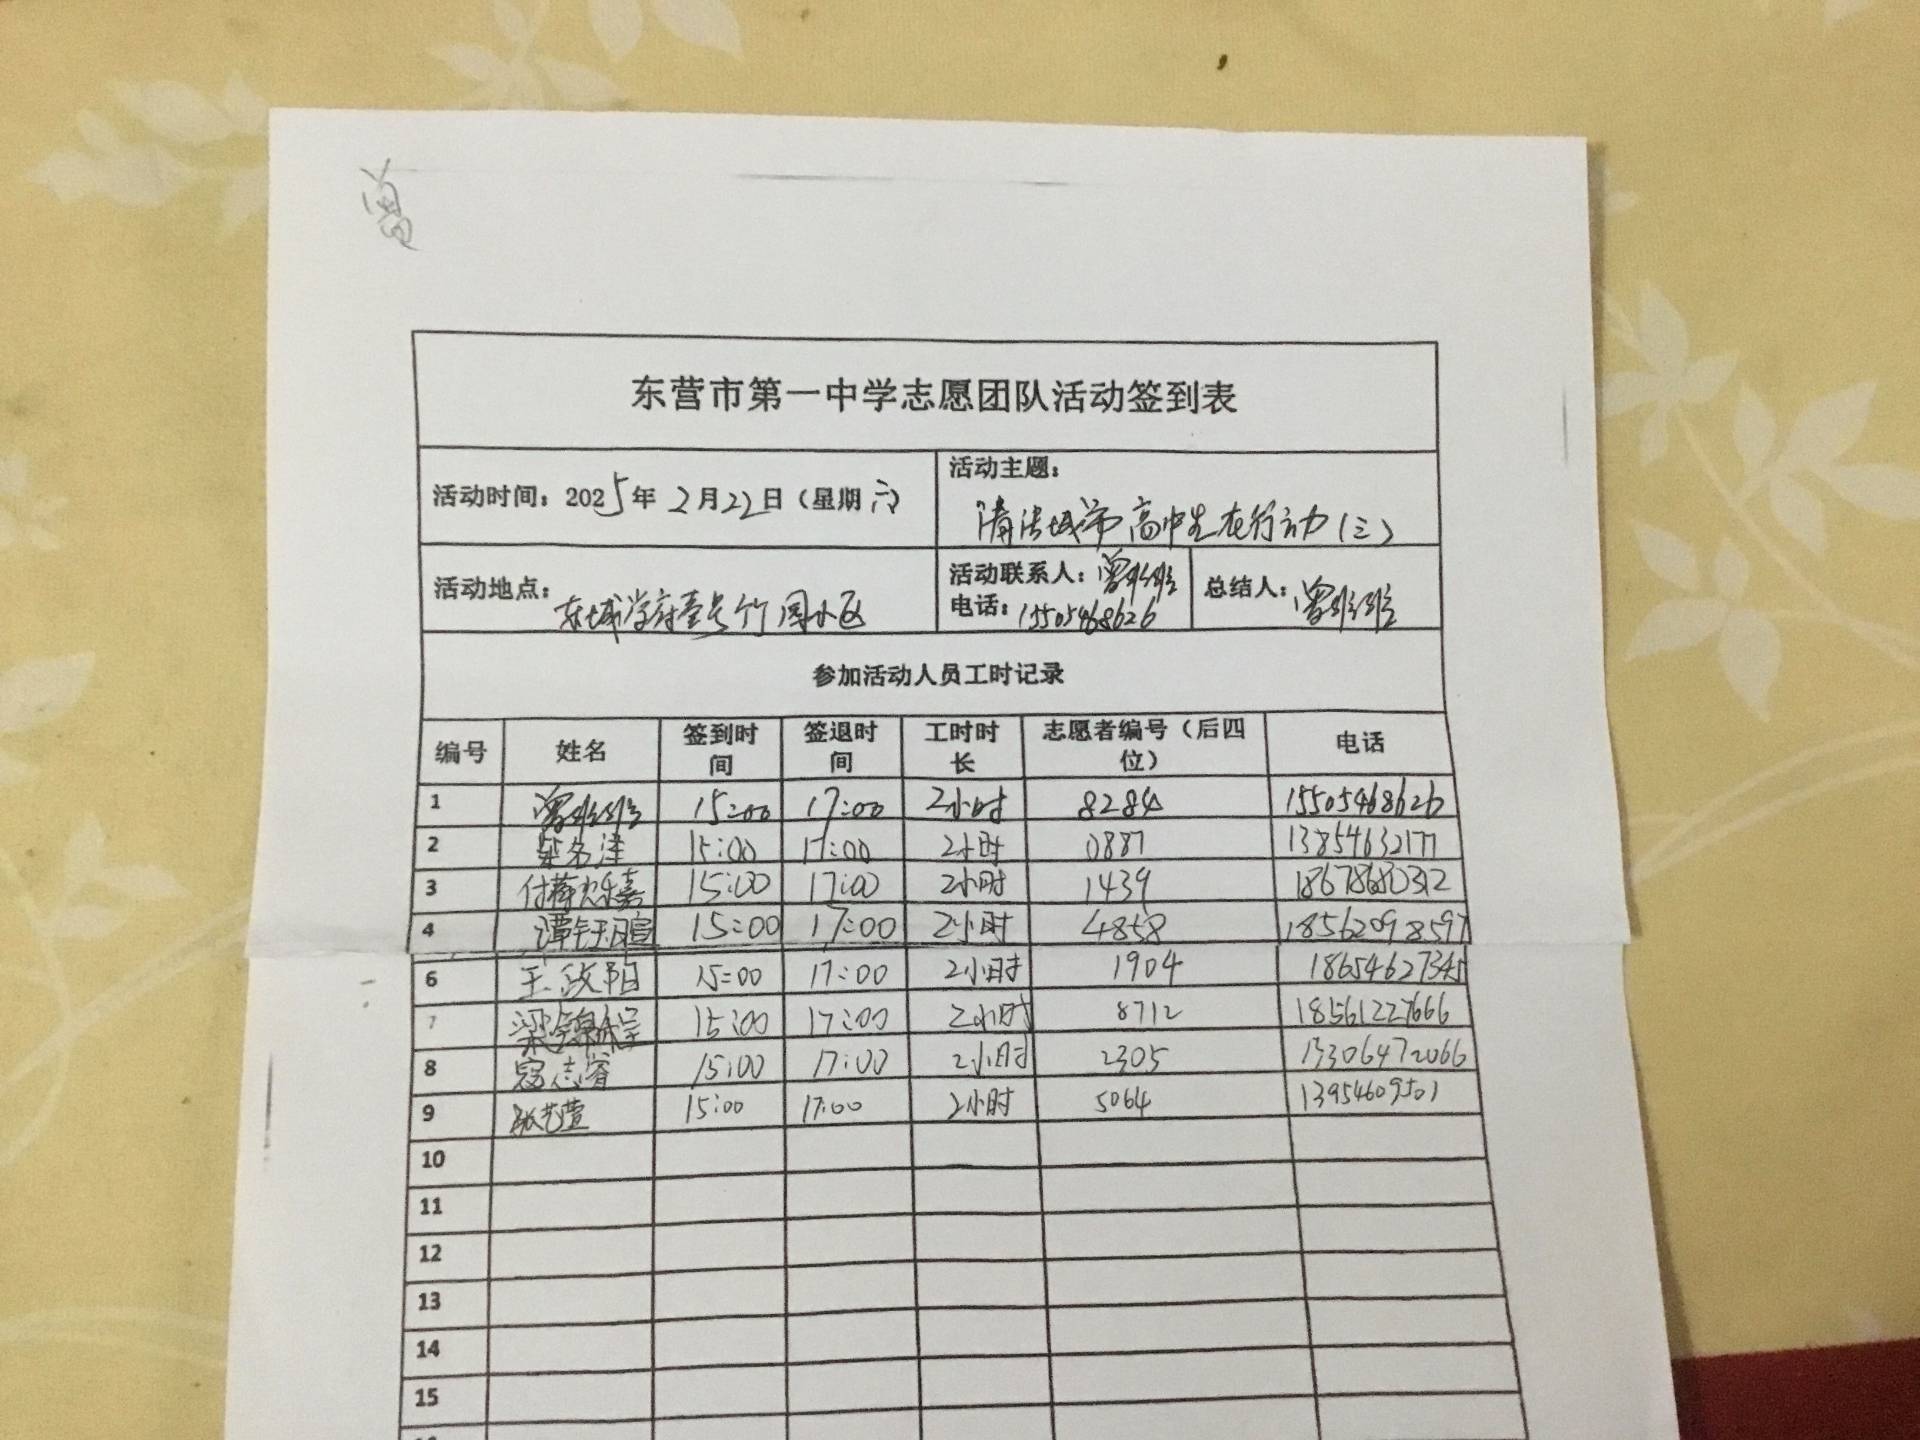 曾
东营市第一中学志愿团队活动签到表
活动时间：2025年2月22日（星期六）
活动主题：
清洁城市 高中生在行动（三）
活动地点：东城学府壹号竹园小区
活动联系人：曾
电话：15505468626
总结人：曾
参加活动人员工时记录
编号 姓名 签到时间 签退时间 工时时长 志愿者编号（后四位） 电话
1 曾 15:00 17:00 2小时 8284 15505468626
2 名泽 15:00 17:00 2小时 0887 13854632177
3 付 嘉 15:00 17:00 2小时 1439 18678680312
4 谭钰暄 15:00 17:00 2小时 4858 18562098597
6 王政阳 15:00 17:00 2小时 1904 18654627345
7 梁锦 15:00 17:00 2小时 8712 18561227666
8 寇志睿 15:00 17:00 2小时 2305 13306472066
9 张艺萱 15:00 17:00 2小时 5064 13954609501
10
11
12
13
14
15